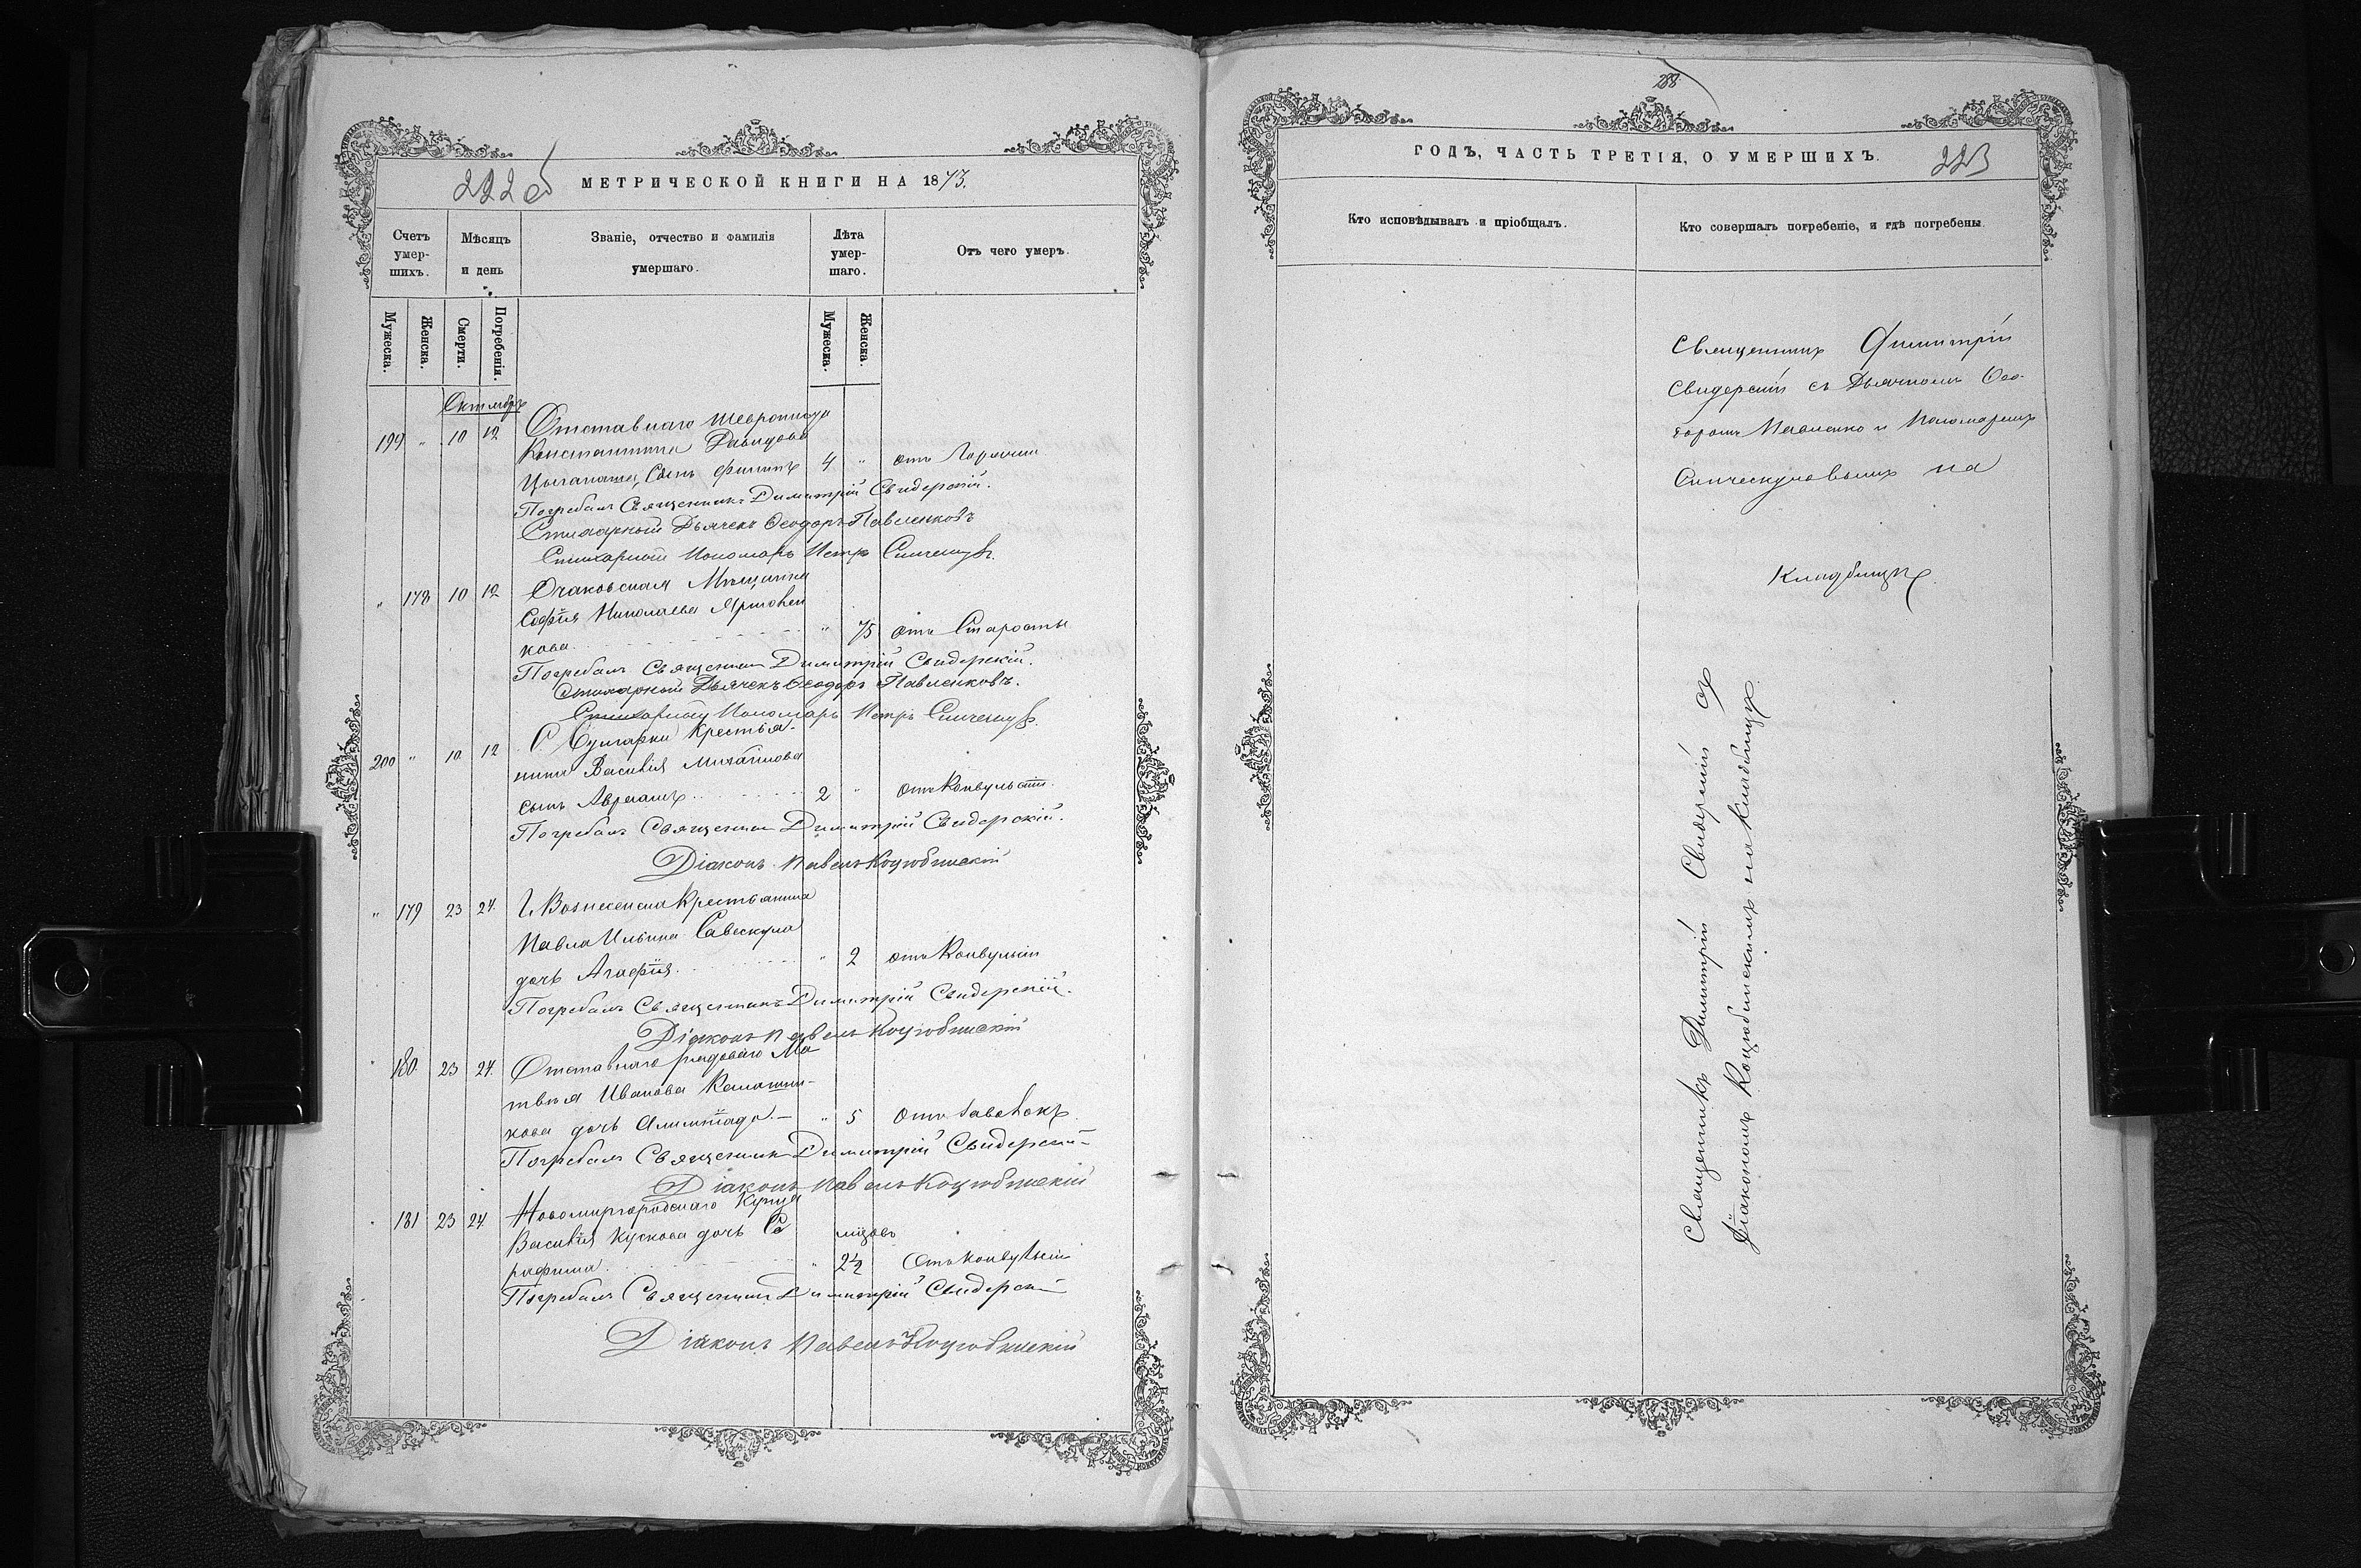 222 об
МЕТРИЧЕСКОЙ КНИГИ НА 1873.
Счетъ умер-шихъ.
Мѣсяцъ и день
Званіе, отчество и фамилія умершаго.
Лѣта умер-шаго.
Отъ чего умеръ.
Мужеска.
Женска.
Смерти.
Погребенія.
Мужеска.
Женска.
Октябрь
199 " 10 12 Отставнаго
Константина Давидова
сынъ Филипъ 4 " отъ Горячки
Погребалъ Священникъ Димитрій Свидерскій.
Стихарный Дьячекъ Ѳеодоръ Павленковъ
Стихарный Пономарь Петръ
" 178 10 12 Очаковская Мѣщанка
Софія Николаева
кова " 75 отъ Старости
Погребалъ Священникъ Димитрій Свидерскій.
Стихарный Дьячекъ Ѳеодоръ Павленковъ.
Стихарный Пономарь Петръ
200 " 10 12 С Булгарки Крестья-
нина Василія Михайлова
сынъ Авраамъ 2 " отъ Конвульсіи.
Погребалъ Священникъ Димитрій Свидерскій.
Діаконъ Павелъ Коцюбинскій
" 179 23 24. Г. Вознесенска Крестьянина
Павла Ильина
дочь Агафія. " 2 отъ Конвульсіи
Погребалъ Священникъ Димитрій Свидерскій.
Діаконъ Павелъ Коцюбинскій
" 180. 23 24. Отставнаго рядоваго Ма
твѣя Иванова Калашни-
кова дочь " 5 отъ
Погребалъ Священникъ Димитрій Свидерскій
Діаконъ Павелъ Коцюбинскій
" 181 23 24 Новомиргородскаго Купца
Василія Кускова дочь Се мѣсяцовъ
рафима. " 2½ Отъ конвульсіи
Погребалъ Священникъ Димитрій Свидерскій
Діаконъ Павелъ Коцюбинскій
288
ГОДЪ, ЧАСТЬ ТРЕТІЯ, О УМЕРШИХЪ.
223
Кто исповѣдывалъ и пріобщалъ.
Кто совершалъ погребеніе, и гдѣ погребены
Священникъ Димитрій
Свидерскій съ Дьячкомъ Ѳео-
доромъ Павленко и Пономаремъ
на
Кладбищѣ.
Священникъ Димитрій Свидерскій съ
Діакономъ Коцюбинскимъ на кладбищѣ.